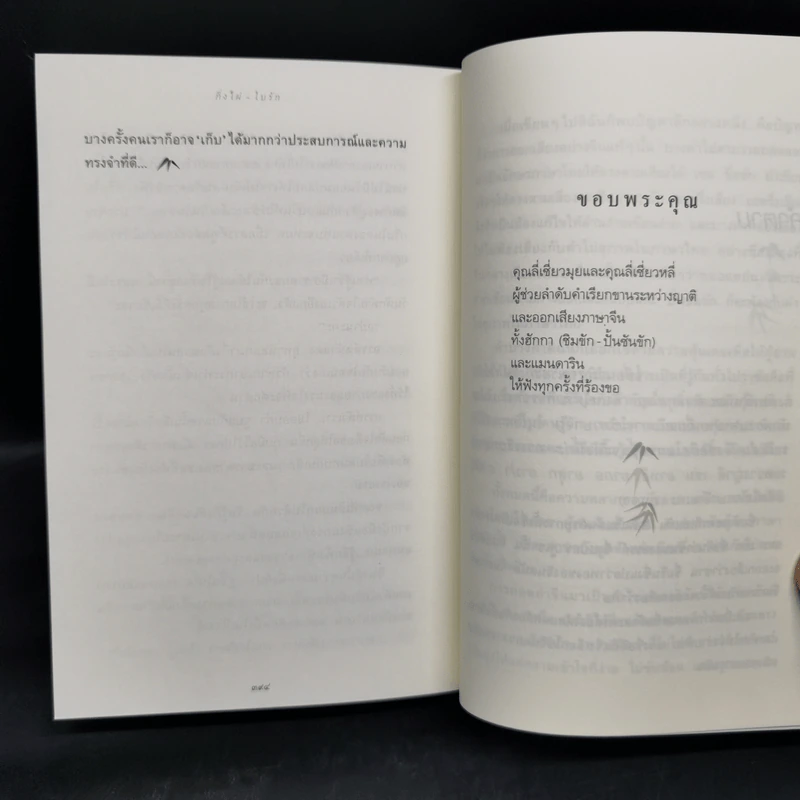 กิ่งไผ่ - ใบรัก
บางครั้งคนเราก็อาจ ‘เก็บ’ ได้มากกว่าประสบการณ์และความ
ทรงจำที่ดี...
๓๙๔
ขอบพระคุณ
คุณลี่เซี่ยวมุยและคุณลี่เซี่ยวหลี่
ผู้ช่วยลำดับคำเรียกขานระหว่างญาติ
และออกเสียงภาษาจีน
ทั้งฮักกา (ซิมขัก - ปั้นซันขัก)
และแมนดาริน
ให้ฟังทุกครั้งที่ร้องขอ